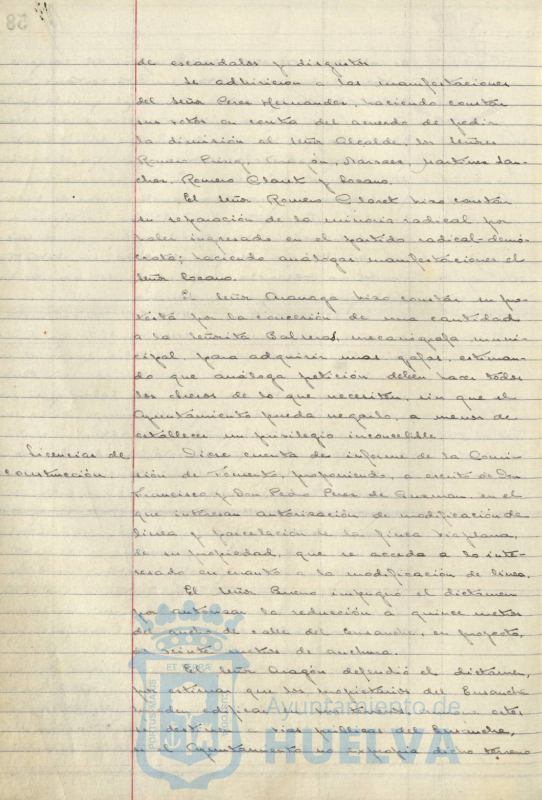 de escandalos y disgustos.
Se adhirieron a las manifestaciones
del Señor Perez Hernandez, haciendo constar
sus votos en contra del acuerdo de pedir
la dimisión al Señor Alcalde, los Señores
Romero Aragón, Narvaez, Martinez San-
chez, Romero Claret y Lozano.
El Señor Romero Claret hizo constar
su separación de la minoria radical por
haber ingresado en el partido radical-demó-
crata; haciendo análogas manifestaciones el
Señor Lozano.
El Señor hizo constar su pro-
testa por la concesión de una cantidad
a la Señorita mecanógrafa muni-
cipal, para adquirir unas gafas, estiman-
do que análoga petición deben hacer todos
los obreros de lo que necesiten, sin que el
Ayuntamiento pueda negarlo, a menos de
establecer un privilegio inconcebible.
Licencias de
construcción.
Diose cuenta de informe de la Comi-
sión de Fomento, proponiendo, a escrito de Don
Francisco y Don Pedro Perez de Guzman, en el
que interesan autorización de modificación de
linea y parcelación de la finca
de su propiedad, que se acceda a lo inte-
resado en cuanto a la modificación de linea.
El Señor impugnó el dictámen
por autorizar la reducción a quince metros
del ancho de calle del Ensanche, en proyecto,
de veinte metros de anchura.
El Señor Aragón defendió el dictámen,
por estimar que los propietarios del Ensanche
pueden edificar
se destinen a vias públicas del Ensanche,
si el Ayuntamiento no expropia dicho terreno
58
Ayuntamiento de
HUELVA
PORTUS MARIS
ET TERRÆ
CUSTODIA